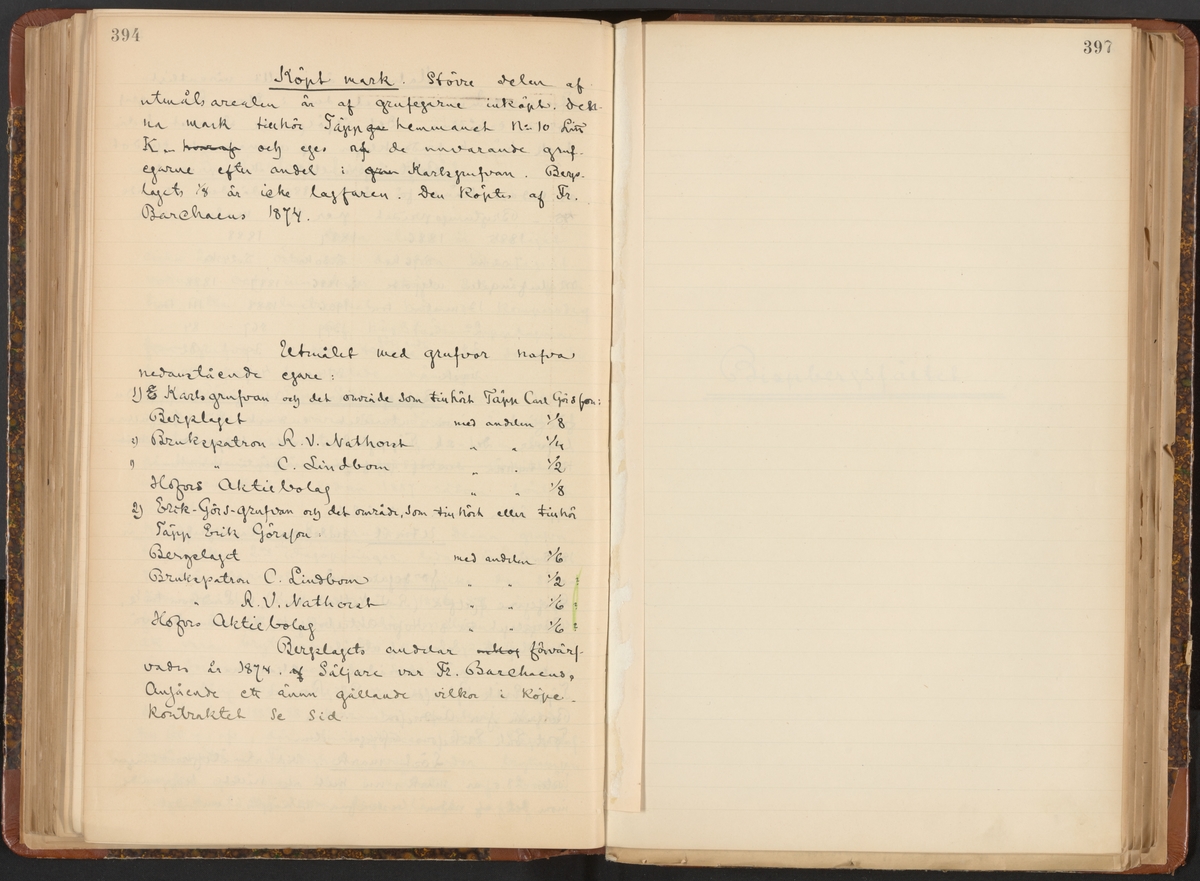 394
Köpt mark. Större delen af
utmålsarealen är af grufegarne inköpt. Den-
na mark tillhör Täpp hemmanet No 10 Litt
K och eges af de nuvarande gruf-
egarne efter andel i Karlsgrufvan. Bergs-
lagets 1/8 är icke lagfaren. Den köptes af Fr.
Barchaeus 1874.
Utmålet med grufvor hafva
nedanstående egare:
1) Karlsgrufvan och det område som tillhört Täpp Carl Görsson:
Bergslaget med andelen 1/8
Brukspatron R. V. Nathorst " " 1/4
" C. Lindbom " " 1/2
Hofors Aktiebolag " " 1/8
2) Erik-Görs-grufvan och det område, som tillhört eller tillhör
Täpp Erik Görsson
Bergslaget med andelen 1/6
Brukspatron C. Lindbom " " 1/2
" R. V. Nathorst " " 1/6
Hofors Aktiebolag " " 1/6
Bergslagets andelar förvärf-
vades år 1874. Säljare var Fr. Barchaeus.
Angående ett ännu gällande vilkor i köpe-
kontraktet se sid
397